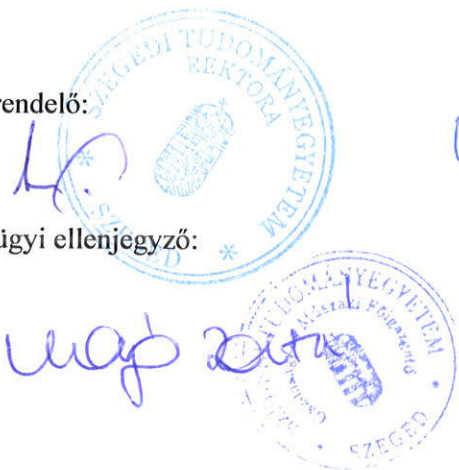 rendelő:
SZEGEDI TUDOMÁNYEGYETEM
REKTORA
* SZEGED *
ügyi ellenjegyző:
TUDOMÁNYEGYETEM
Műszaki Főigazgató
• SZEGED •